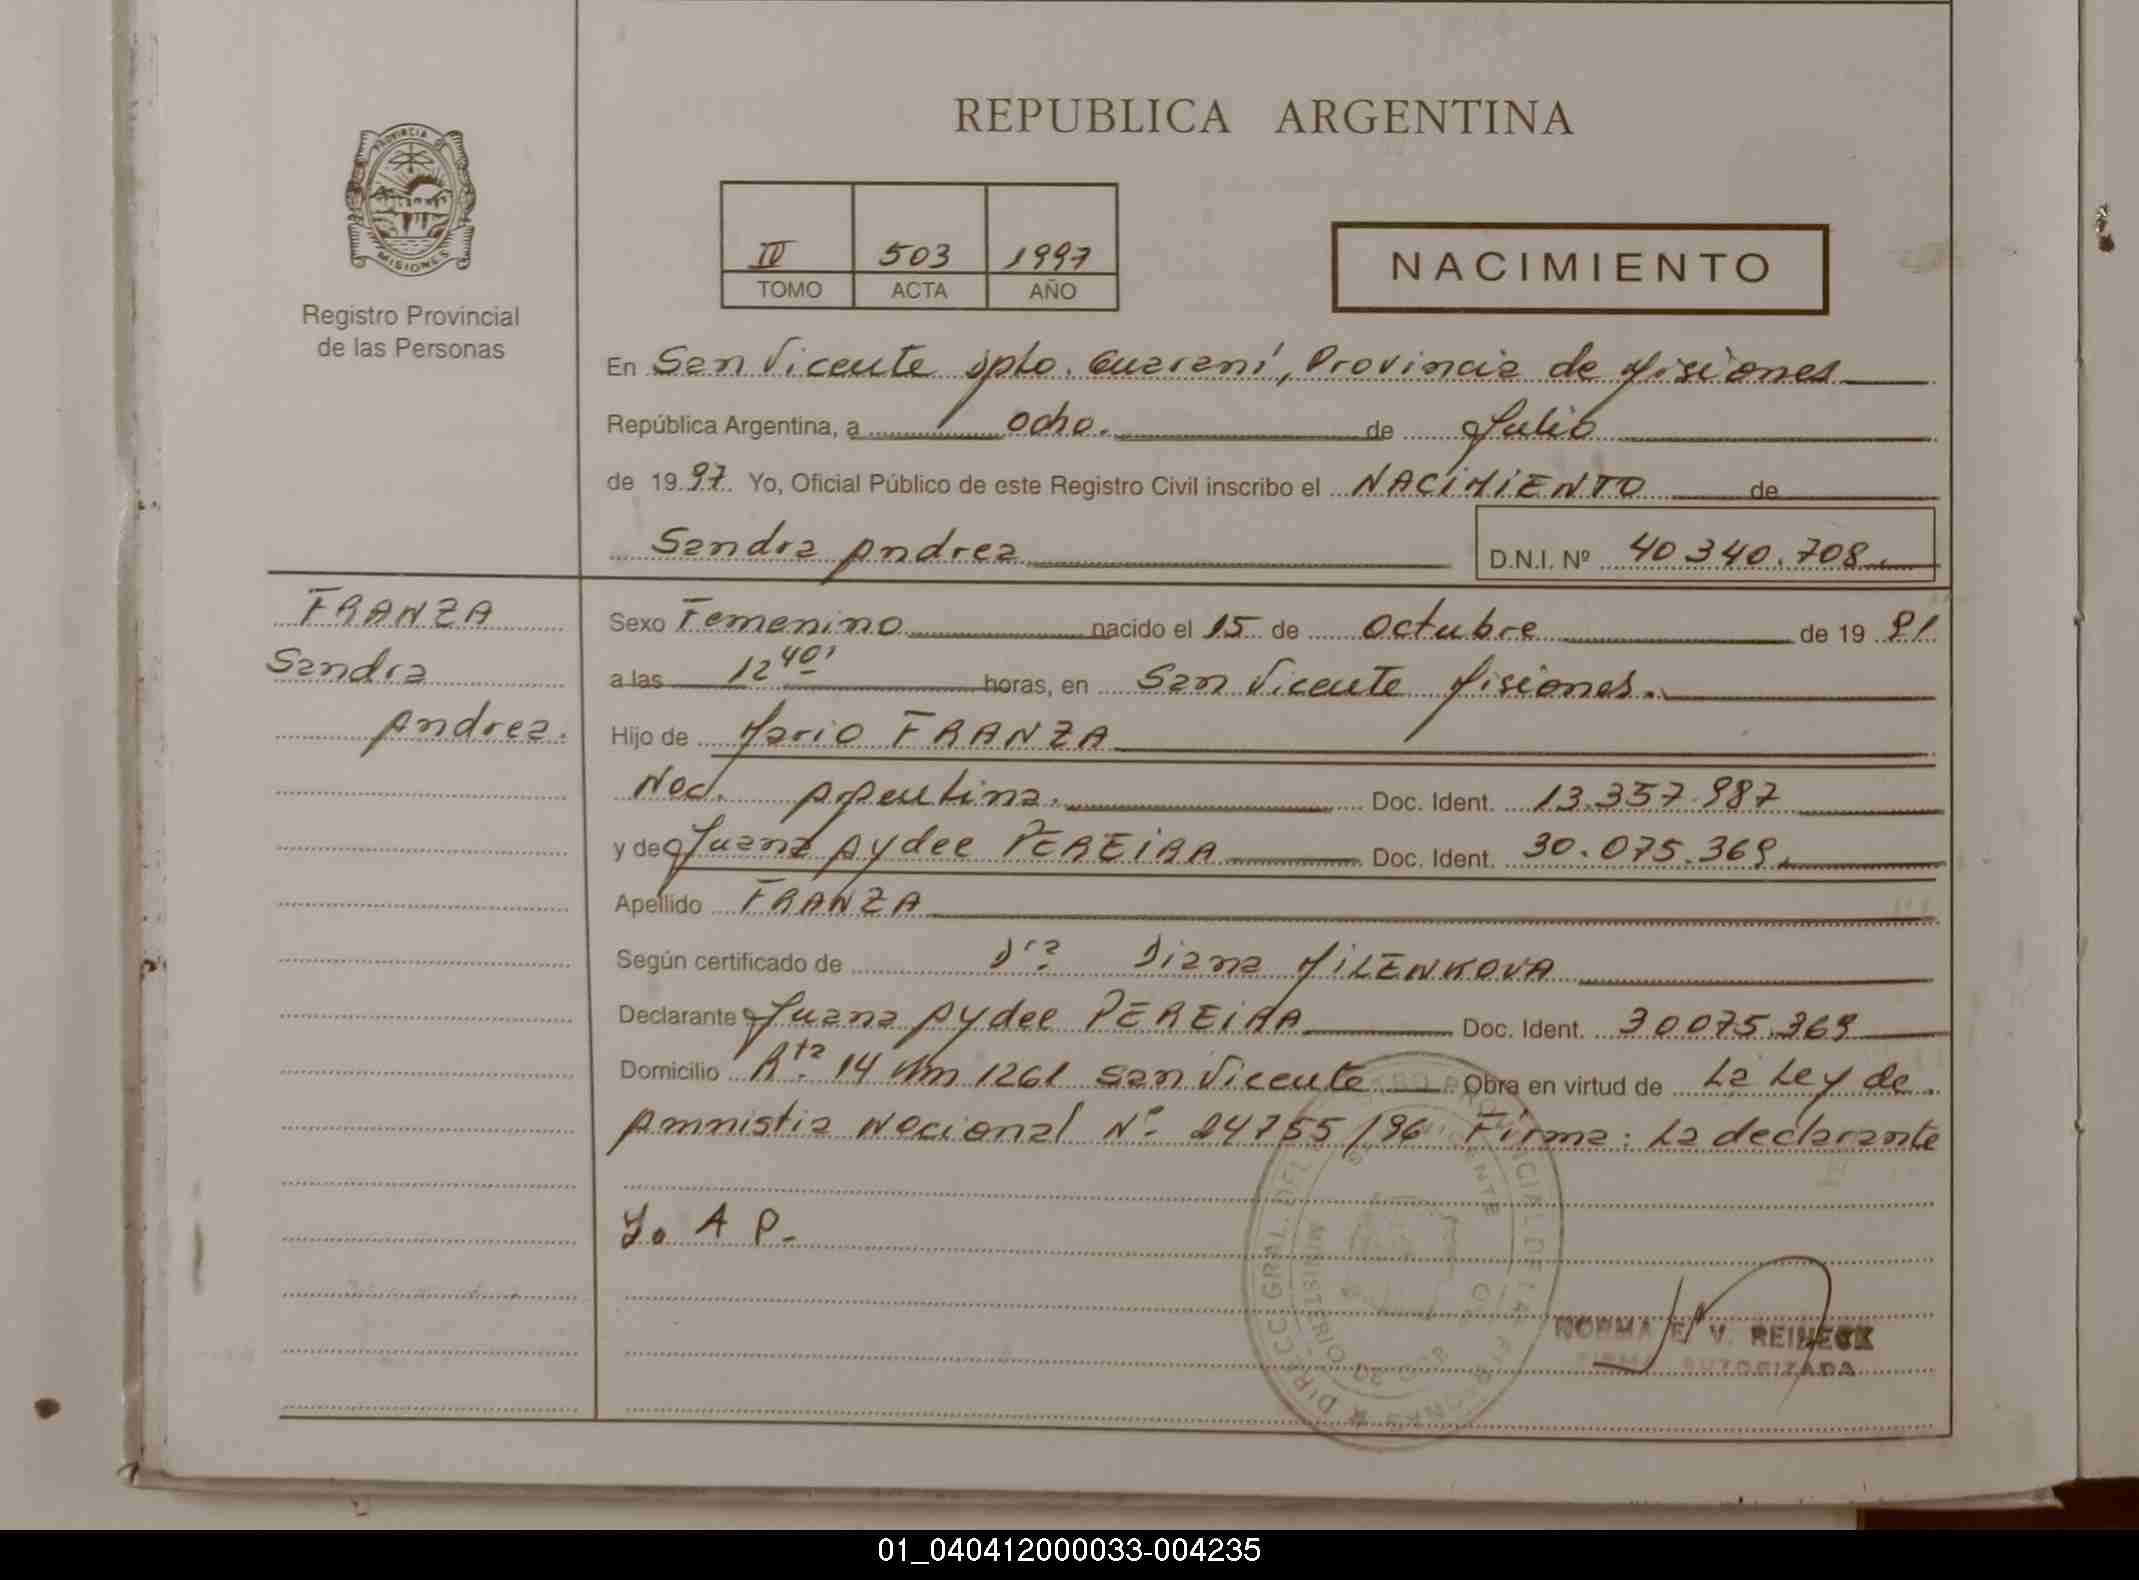 REPUBLICA ARGENTINA
PROVINCIA DE
MISIONES
Registro Provincial
de las Personas
IV 503 1997
TOMO ACTA AÑO
NACIMIENTO
En San Vicente Dpto. Guaraní, Provincia de Misiones
República Argentina, a ocho. de Julio
de 1997. Yo, Oficial Público de este Registro Civil inscribo el NACIMIENTO de
Sandra Andrea D.N.I. Nº 40 340.708.
FRANZA
Sandra
Andrea.
Sexo Femenino nacido el 15 de octubre de 1991
a las 12 40' horas, en San Vicente Misiones.
Hijo de Mario FRANZA
Nac. Argentina. Doc. Ident. 13.357.987
y de Juana Aydee PEREIRA Doc. Ident. 30.075.369.
Apellido FRANZA
Según certificado de Dra Diana MILENKOVA
Declarante Juana Aydee PEREIRA Doc. Ident. 30075.369
Domicilio Rta. 14 Km 1261 San Vicente Obra en virtud de La Ley de
Amnistia Nacional Nº 24755/96 Firma: La declarante
J. A P.
NORMA E. V. REINECK
FIRMA AUTORIZADA
01_040412000033-004235